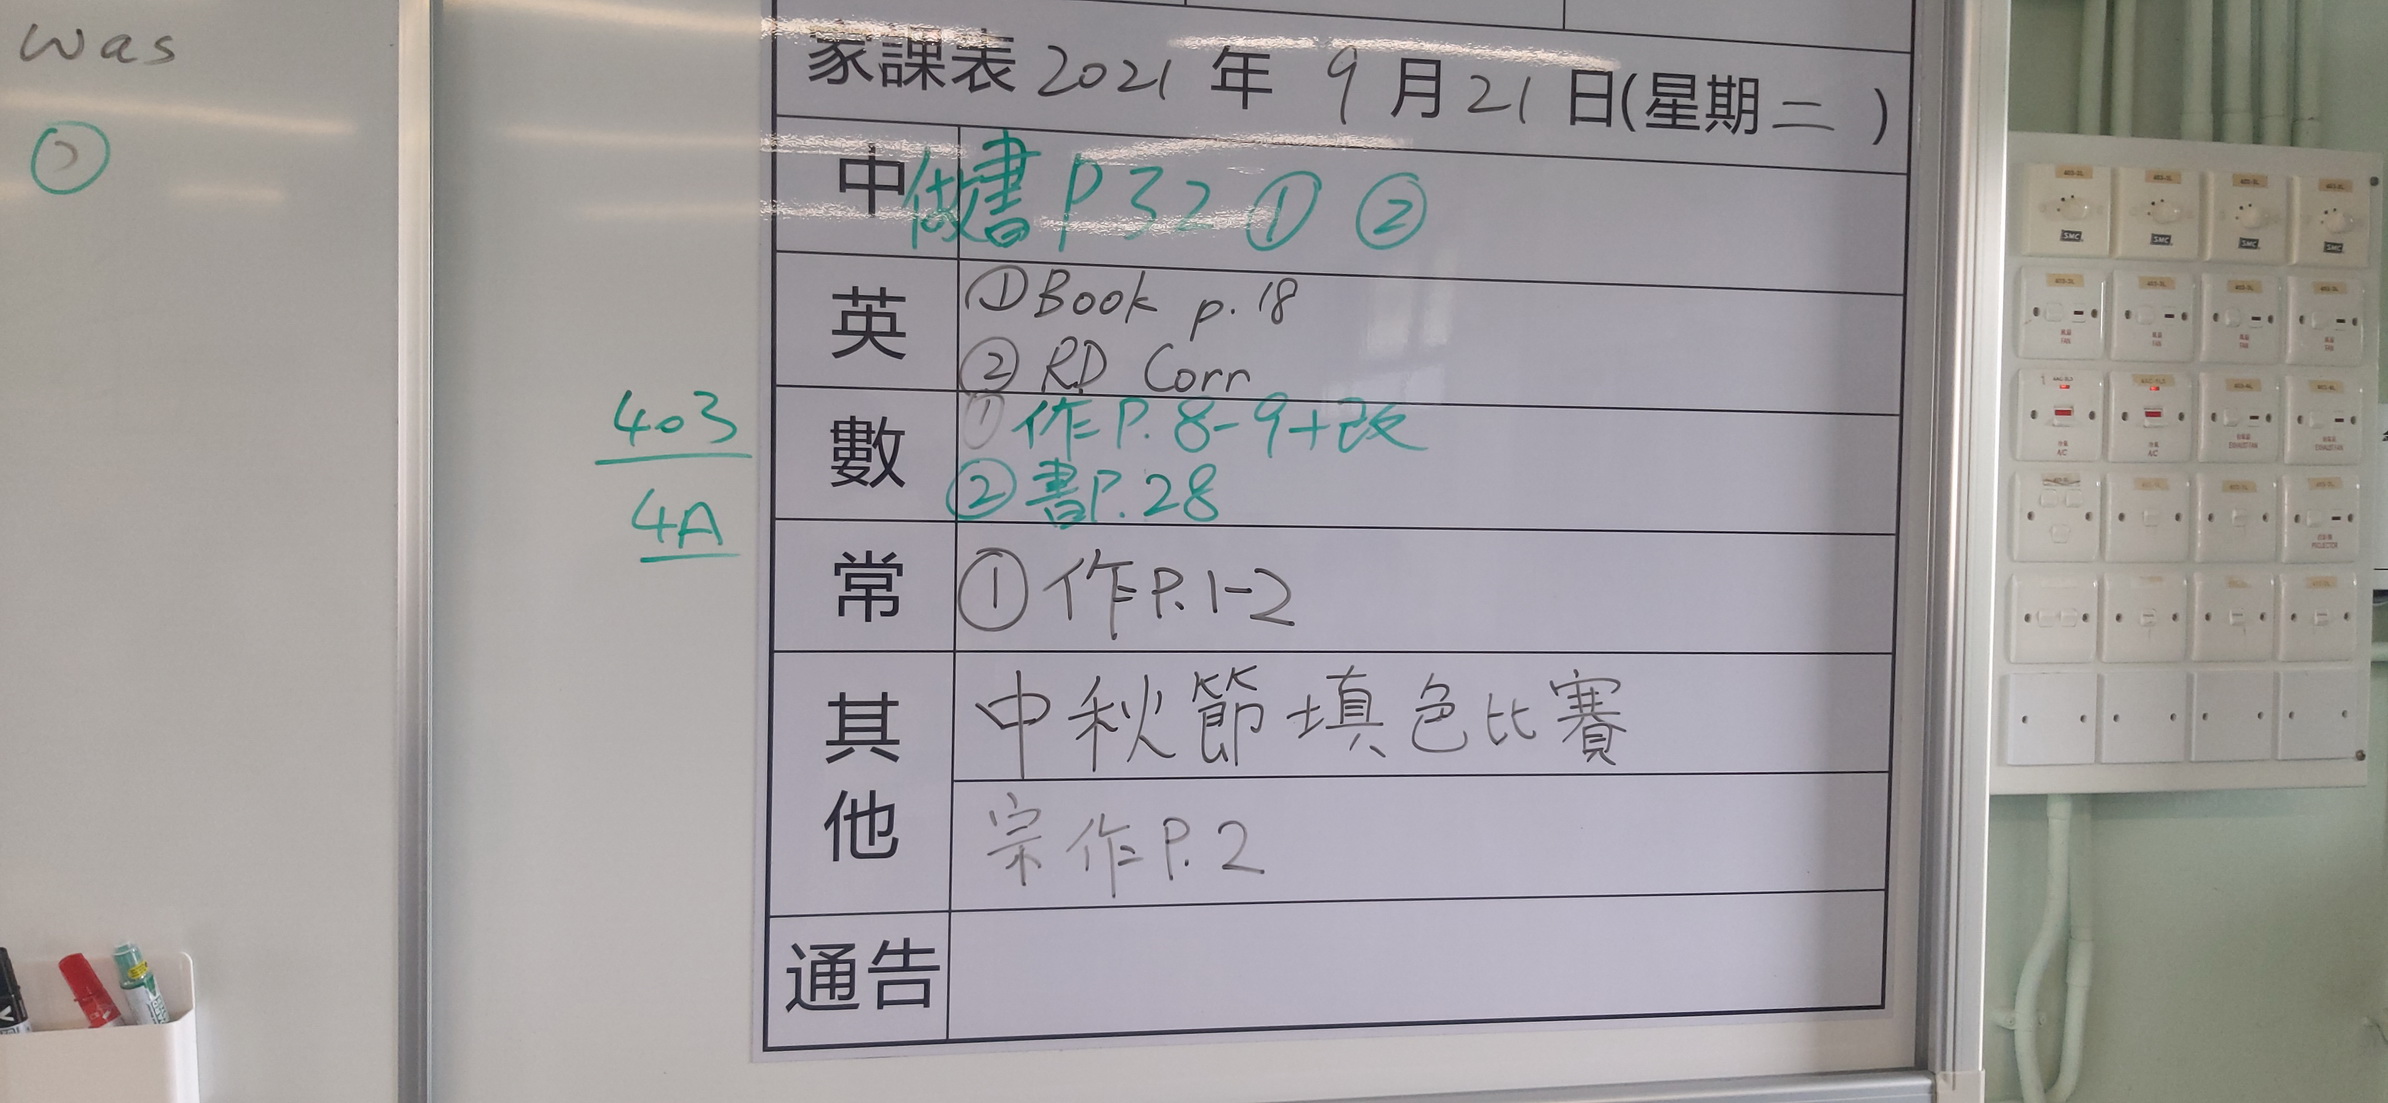 was
②
家課表 2021 年 9 月 21 日(星期二)
中 做書 P32 ① ②
英 ① Book p.18
② RD Corr
403
數 ① 作 P. 8-9+改
② 書 P. 28
4A
常 ① 作 P. 1-2
其他 中秋節填色比賽
宗作 P. 2
通告
SMC SMC SMC SMC
FAN FAN FAN FAN
A/C A/C